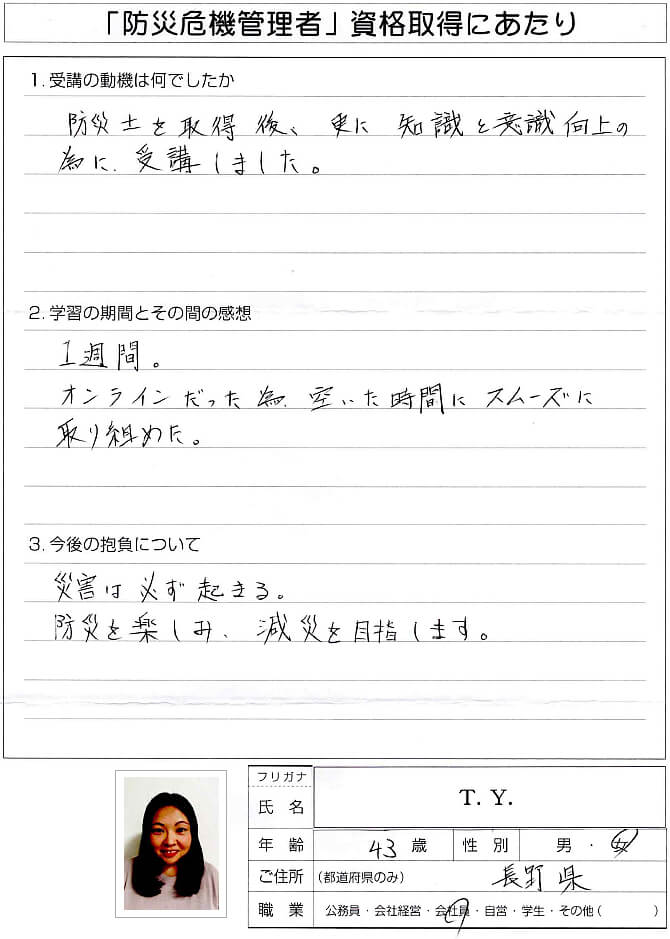 「防災危機管理者」資格取得にあたり
1. 受講の動機は何でしたか
防災士を取得後、更に知識と意識向上の
為に、受講しました。
2. 学習の期間とその間の感想
1週間。
オンラインだった為、空いた時間にスムーズに
取り組めた。
3. 今後の抱負について
災害は必ず起きる。
防災を楽しみ、減災を目指します。
フリガナ
氏 名 T. Y.
年 齢 43 歳 性 別 男 ・ 女
ご住所 (都道府県のみ) 長野県
職 業 公務員・会社経営・会社員・自営・学生・その他( )